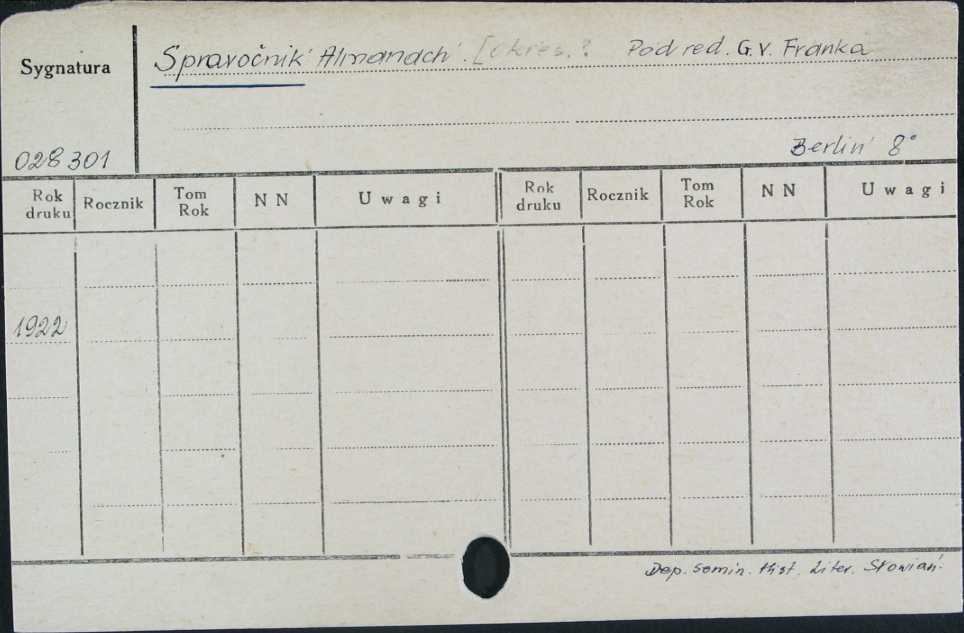 Sygnatura
Spravočnik Almanach. [okres.? Pod red. G.V. Franka
028301
Berlin 8°
Rok druku Rocznik Tom Rok NN Uwagi Rok druku Rocznik Tom Rok NN Uwagi
1922
Dep. Semin. Hist. Liter. Słowiań.